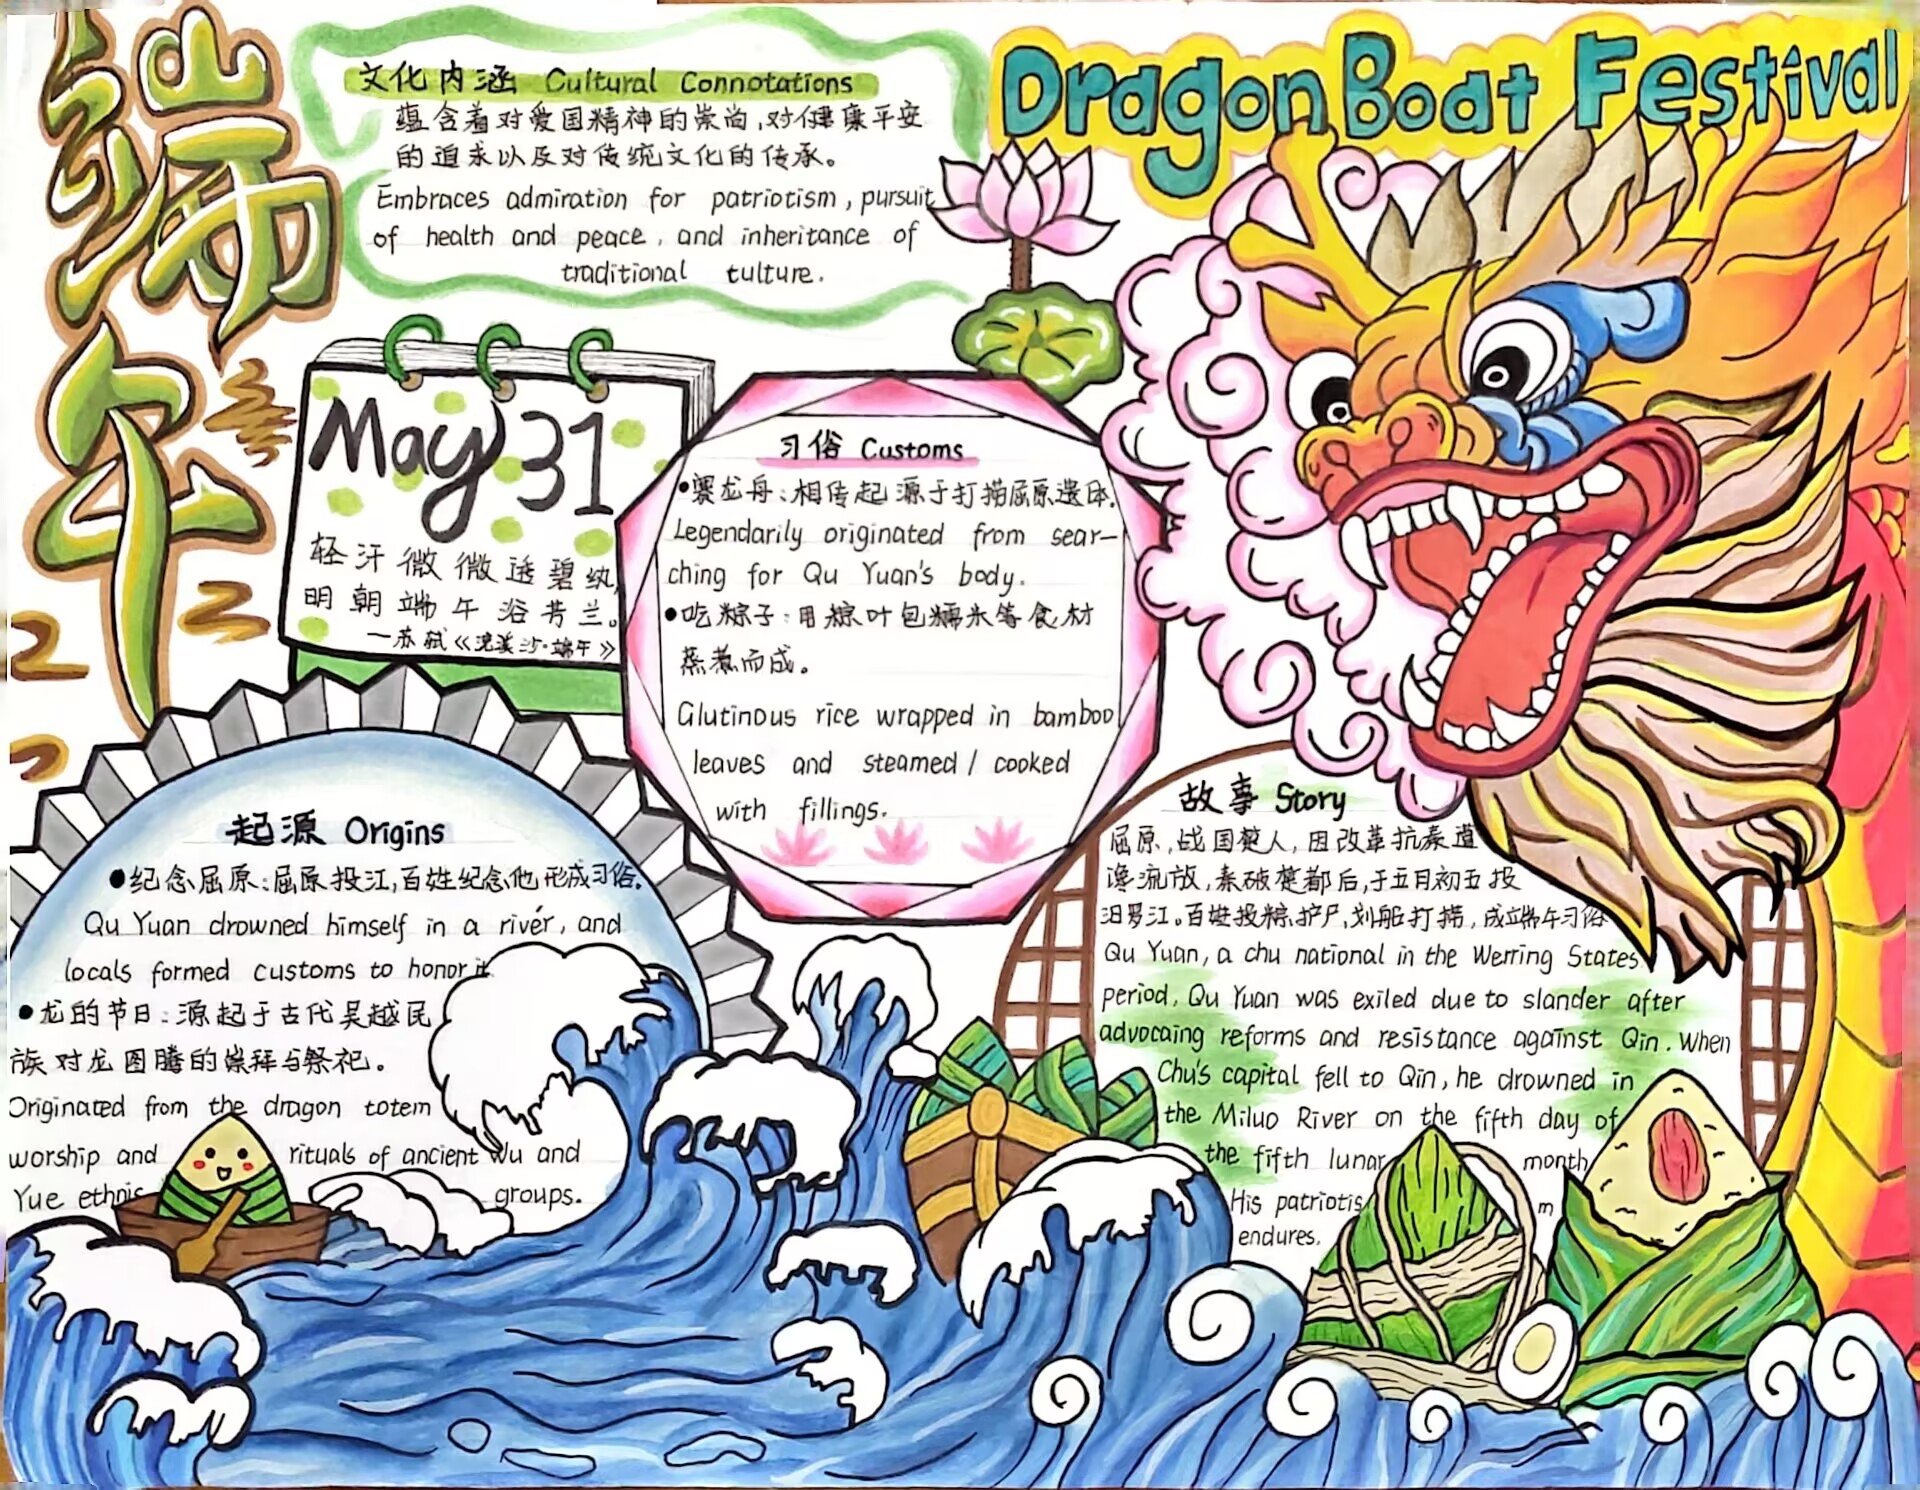 端午
文化内涵 Cultural Connotations
蕴含着对爱国精神的崇尚,对健康平安
的追求以及对传统文化的传承。
Embraces admiration for patriotism, pursuit
of health and peace, and inheritance of
traditional tulture.
Dragon Boat Festival
May 31
轻汗微微透碧纨,
明朝端午浴芳兰。
—苏轼《浣溪沙·端午》
习俗 Customs
•赛龙舟:相传起源于打捞屈原遗体.
Legendarily originated from sear-
ching for Qu Yuan's body.
•吃粽子:用粽叶包糯米等食材
蒸煮而成。
Glutinous rice wrapped in bamboo
leaves and steamed / cooked
with fillings.
起源 Origins
•纪念屈原:屈原投江,百姓纪念他形成习俗.
Qu Yuan drowned himself in a river, and
locals formed customs to honor it
•龙的节日:源起于古代吴越民
族对龙图腾的崇拜与祭祀。
Originated from the dragon totem
worship and rituals of ancient Wu and
Yue ethnic groups.
故事 Story
屈原,战国楚人,因改革抗秦遭
谗流放,秦破楚都后,于五月初五投
汨罗江。百姓投粽护尸,划船打捞,成端午习俗
Qu Yuan, a chu national in the Werring States
period, Qu Yuan was exiled due to slander after
advocaing reforms and resistance against Qin. When
Chu's capital fell to Qin, he drowned in
the Miluo River on the fifth day of
the fifth lunar month
His patriotis m
endures.